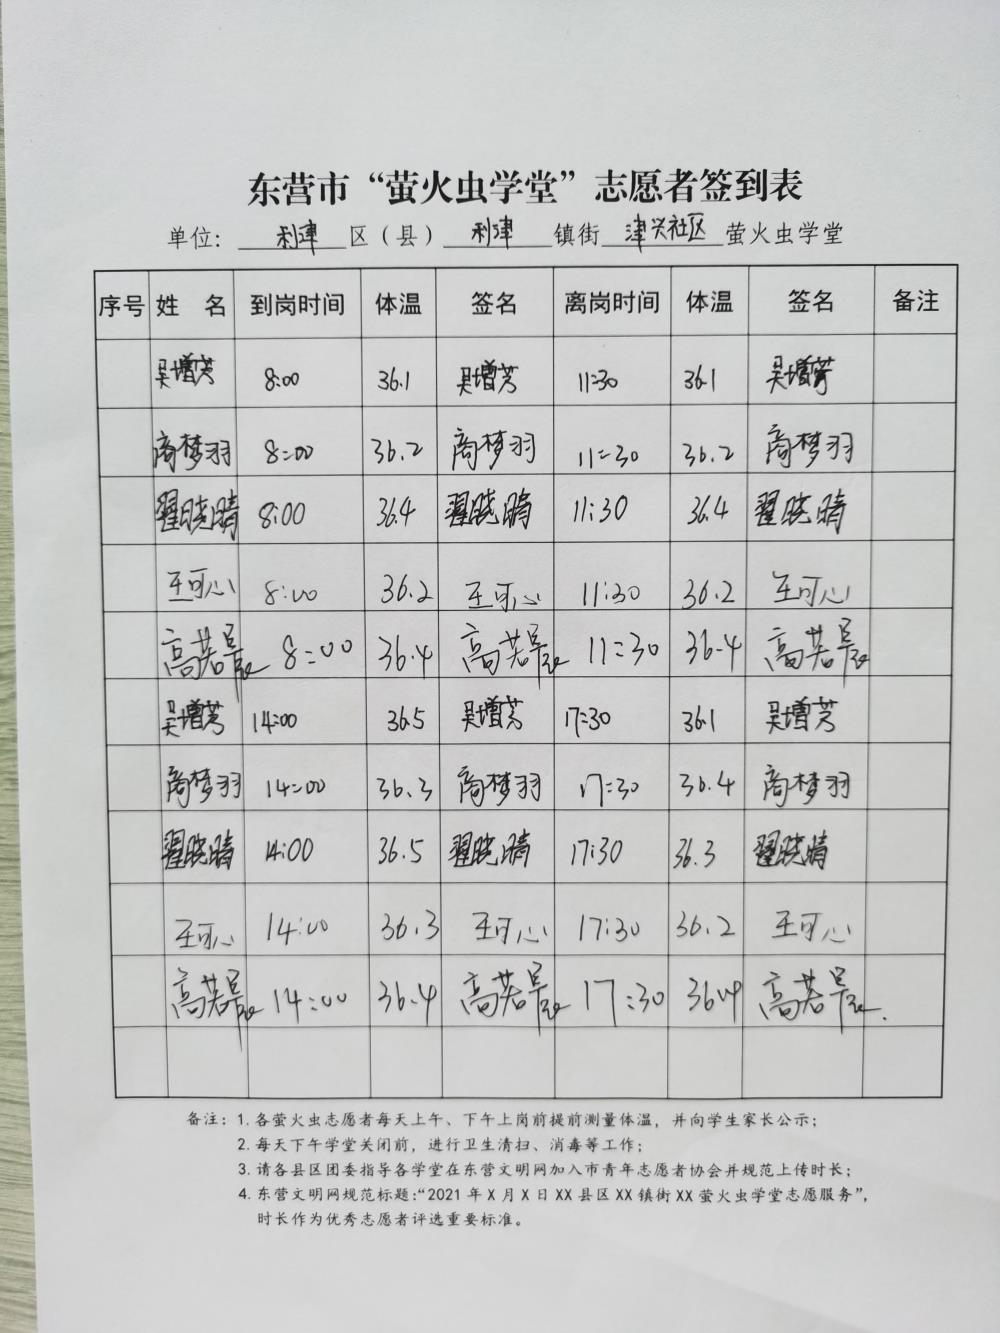 东营市“萤火虫学堂”志愿者签到表
单位：利津区（县）利津镇街津兴社区萤火虫学堂
序号 姓 名 到岗时间 体温 签名 离岗时间 体温 签名 备注
吴增芳 8:00 36.1 吴增芳 11:30 36.1 吴增芳
商梦羽 8:00 36.2 商梦羽 11:30 36.2 商梦羽
翟晓晴 8:00 36.4 翟晓晴 11:30 36.4 翟晓晴
王可心 8:00 36.2 王可心 11:30 36.2 王可心
高若晨 8:00 36.4 高若晨 11:30 36.4 高若晨
吴增芳 14:00 36.5 吴增芳 17:30 36.1 吴增芳
商梦羽 14:00 36.3 商梦羽 17:30 36.4 商梦羽
翟晓晴 14:00 36.5 翟晓晴 17:30 36.3 翟晓晴
王可心 14:00 36.3 王可心 17:30 36.2 王可心
高若晨 14:00 36.4 高若晨 17:30 36.4 高若晨.
备注：1. 各萤火虫志愿者每天上午、下午上岗前提前测量体温，并向学生家长公示；
2. 每天下午学堂关闭前，进行卫生清扫、消毒等工作；
3. 请各县区团委指导各学堂在东营文明网加入市青年志愿者协会并规范上传时长；
4. 东营文明网规范标题：“2021 年 X 月 X 日 XX 县区 XX 镇街 XX 萤火虫学堂志愿服务”，
时长作为优秀志愿者评选重要标准。